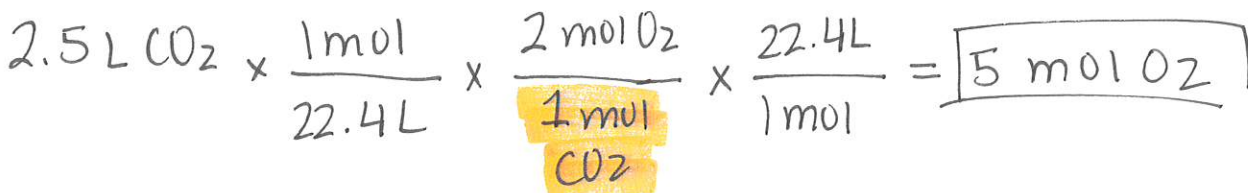 2.5 L CO2 × 1 mol / 22.4 L × 2 mol O2 / 1 mol CO2 × 22.4 L / 1 mol = 5 mol O2